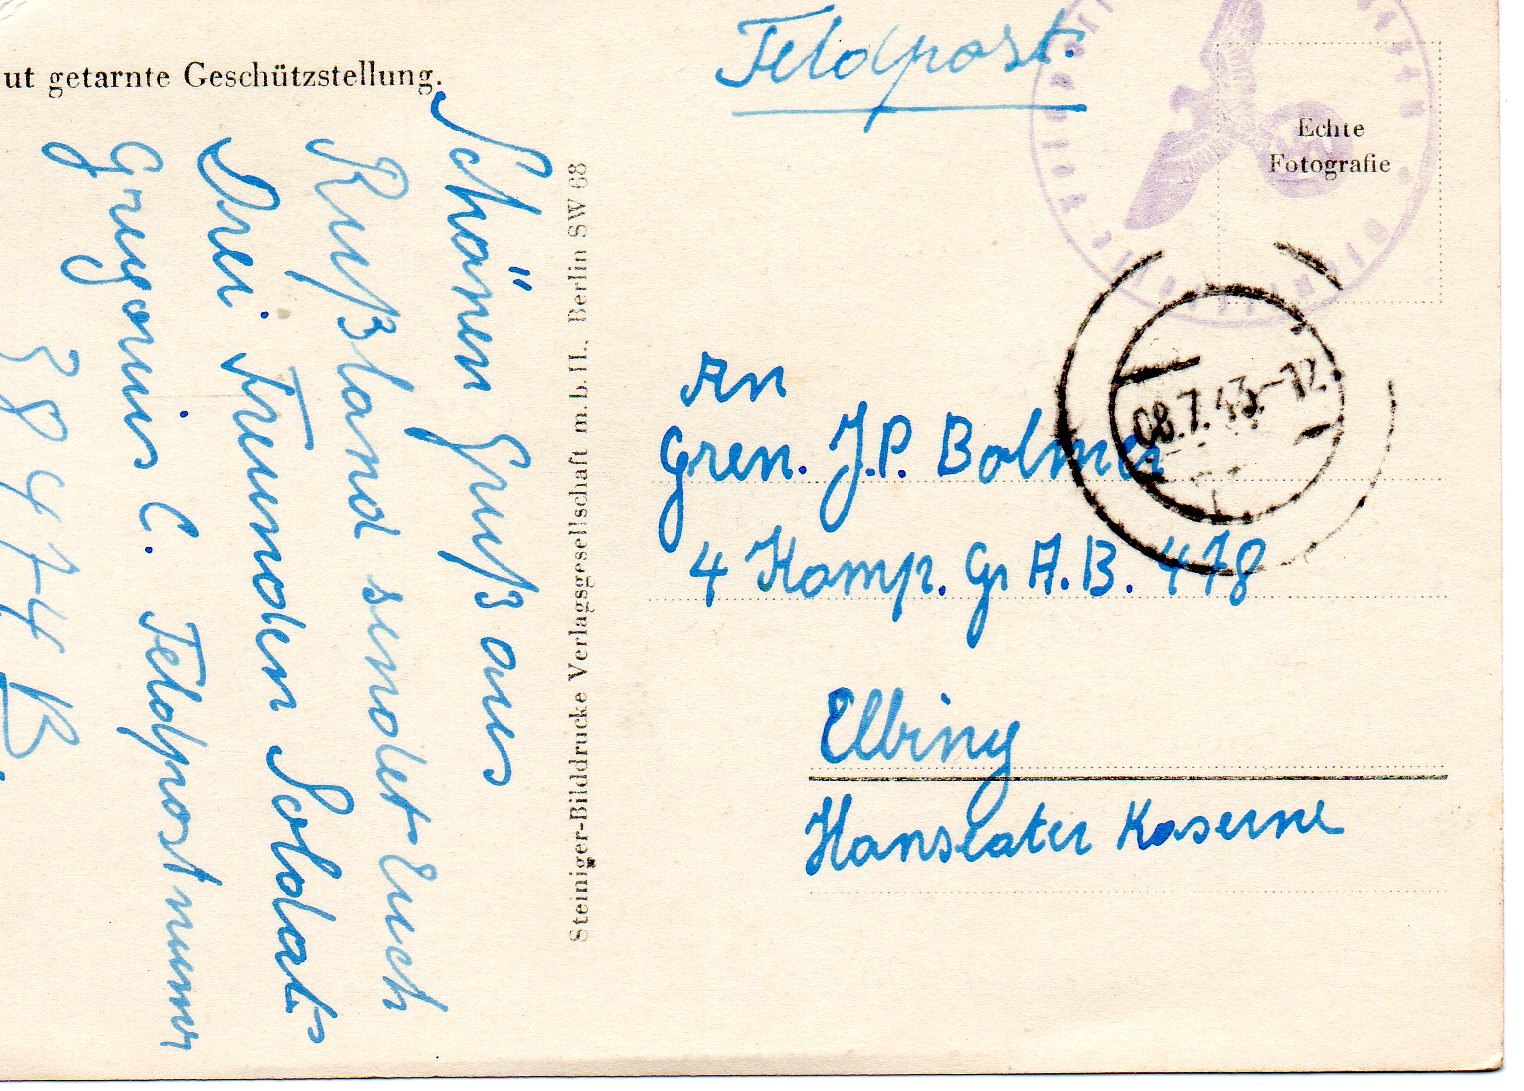 ut getarnte Geschützstellung.
Schönen Gruß aus
Rußland sendet Euch
Drei Freunden Soldat
Gregorius C. Feldpostnummr
38974 B.
Steiniger-Bilddrucke Verlagsgesellschaft m. b. H., Berlin SW 68
Feldpost.
Echte
Fotografie
08.7.43.-12
An
Gren. J.P. Bolmer
4 Komp. Gr A.B. 478
Elbing
Hanseater Kaserne